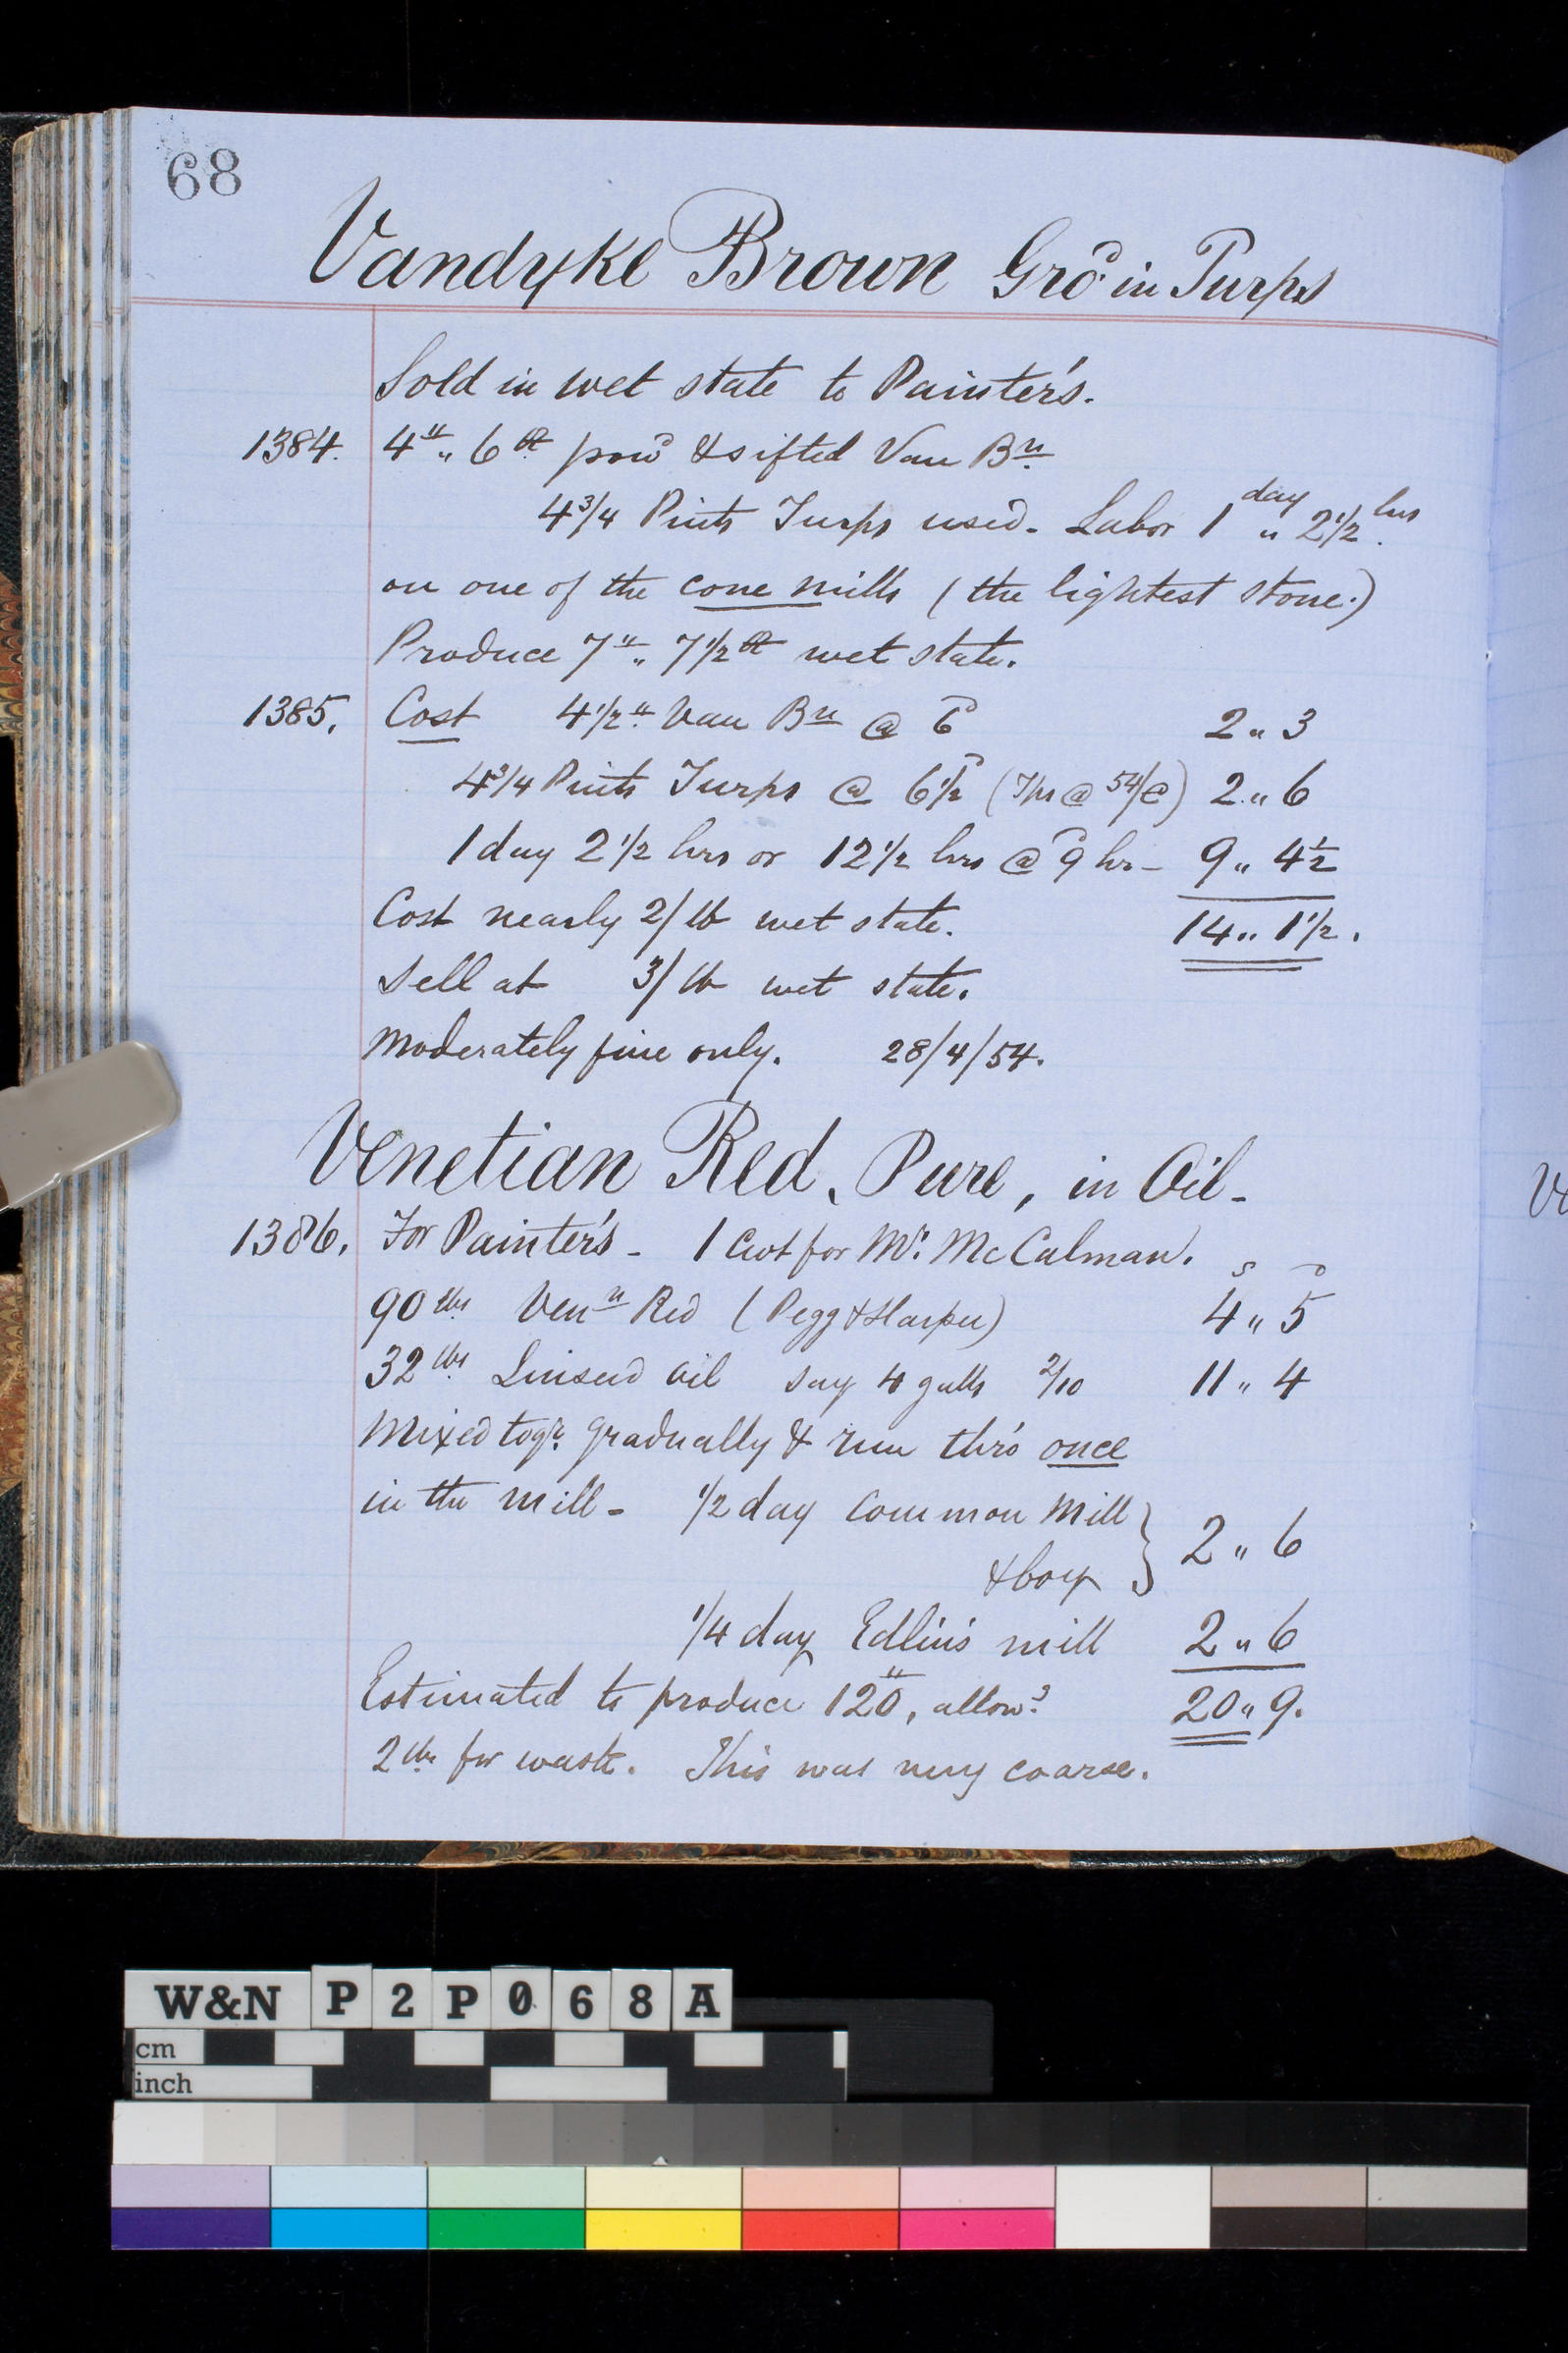 68
Vandyke Brown Gro^d. in Turps
Sold in wet state to Painter's.
1384. 4^lb „ 6^oz pow^d & sifted Van B^n.
4 3/4 Pints Turps used. Labor 1 day „ 2 1/2 hrs.
on one of the cone mills (the lightest stone.)
Produce 7^lb „ 7 1/2^oz wet state.
1385. Cost 4 1/2^lb Van B^n @ 6^d 2 „ 3
4 3/4 Pints Turps @ 6 1/2^d (Tps @ 54/c) 2 „ 6
1 day 2 1/2 hrs or 12 1/2 hrs @ 9^d hr – 9 „ 4 1/2
Cost nearly 2/ lb wet state. 14 „ 1 1/2.
Sell at 3/ lb wet state.
Moderately fine only. 28/4/54.
Venetian Red, Pure, in Oil –
1386. For Painter's – 1 Cwt for Mr. McCalman. s d
90 lbs Ven^n Red (Pegg & Harper) 4 „ 5
32 lbs Linseed Oil say 4 galls 2/10 11 „ 4
Mixed tog^r. gradually & run thro' once
in the mill – 1/2 day Common Mill
& boy } 2 „ 6
1/4 day Edlin's mill 2 „ 6
Estimated to produce 120^lb, allow^g 20 „ 9.
2 lbs for waste. This was very coarse.
W&N P2P068A
cm
inch